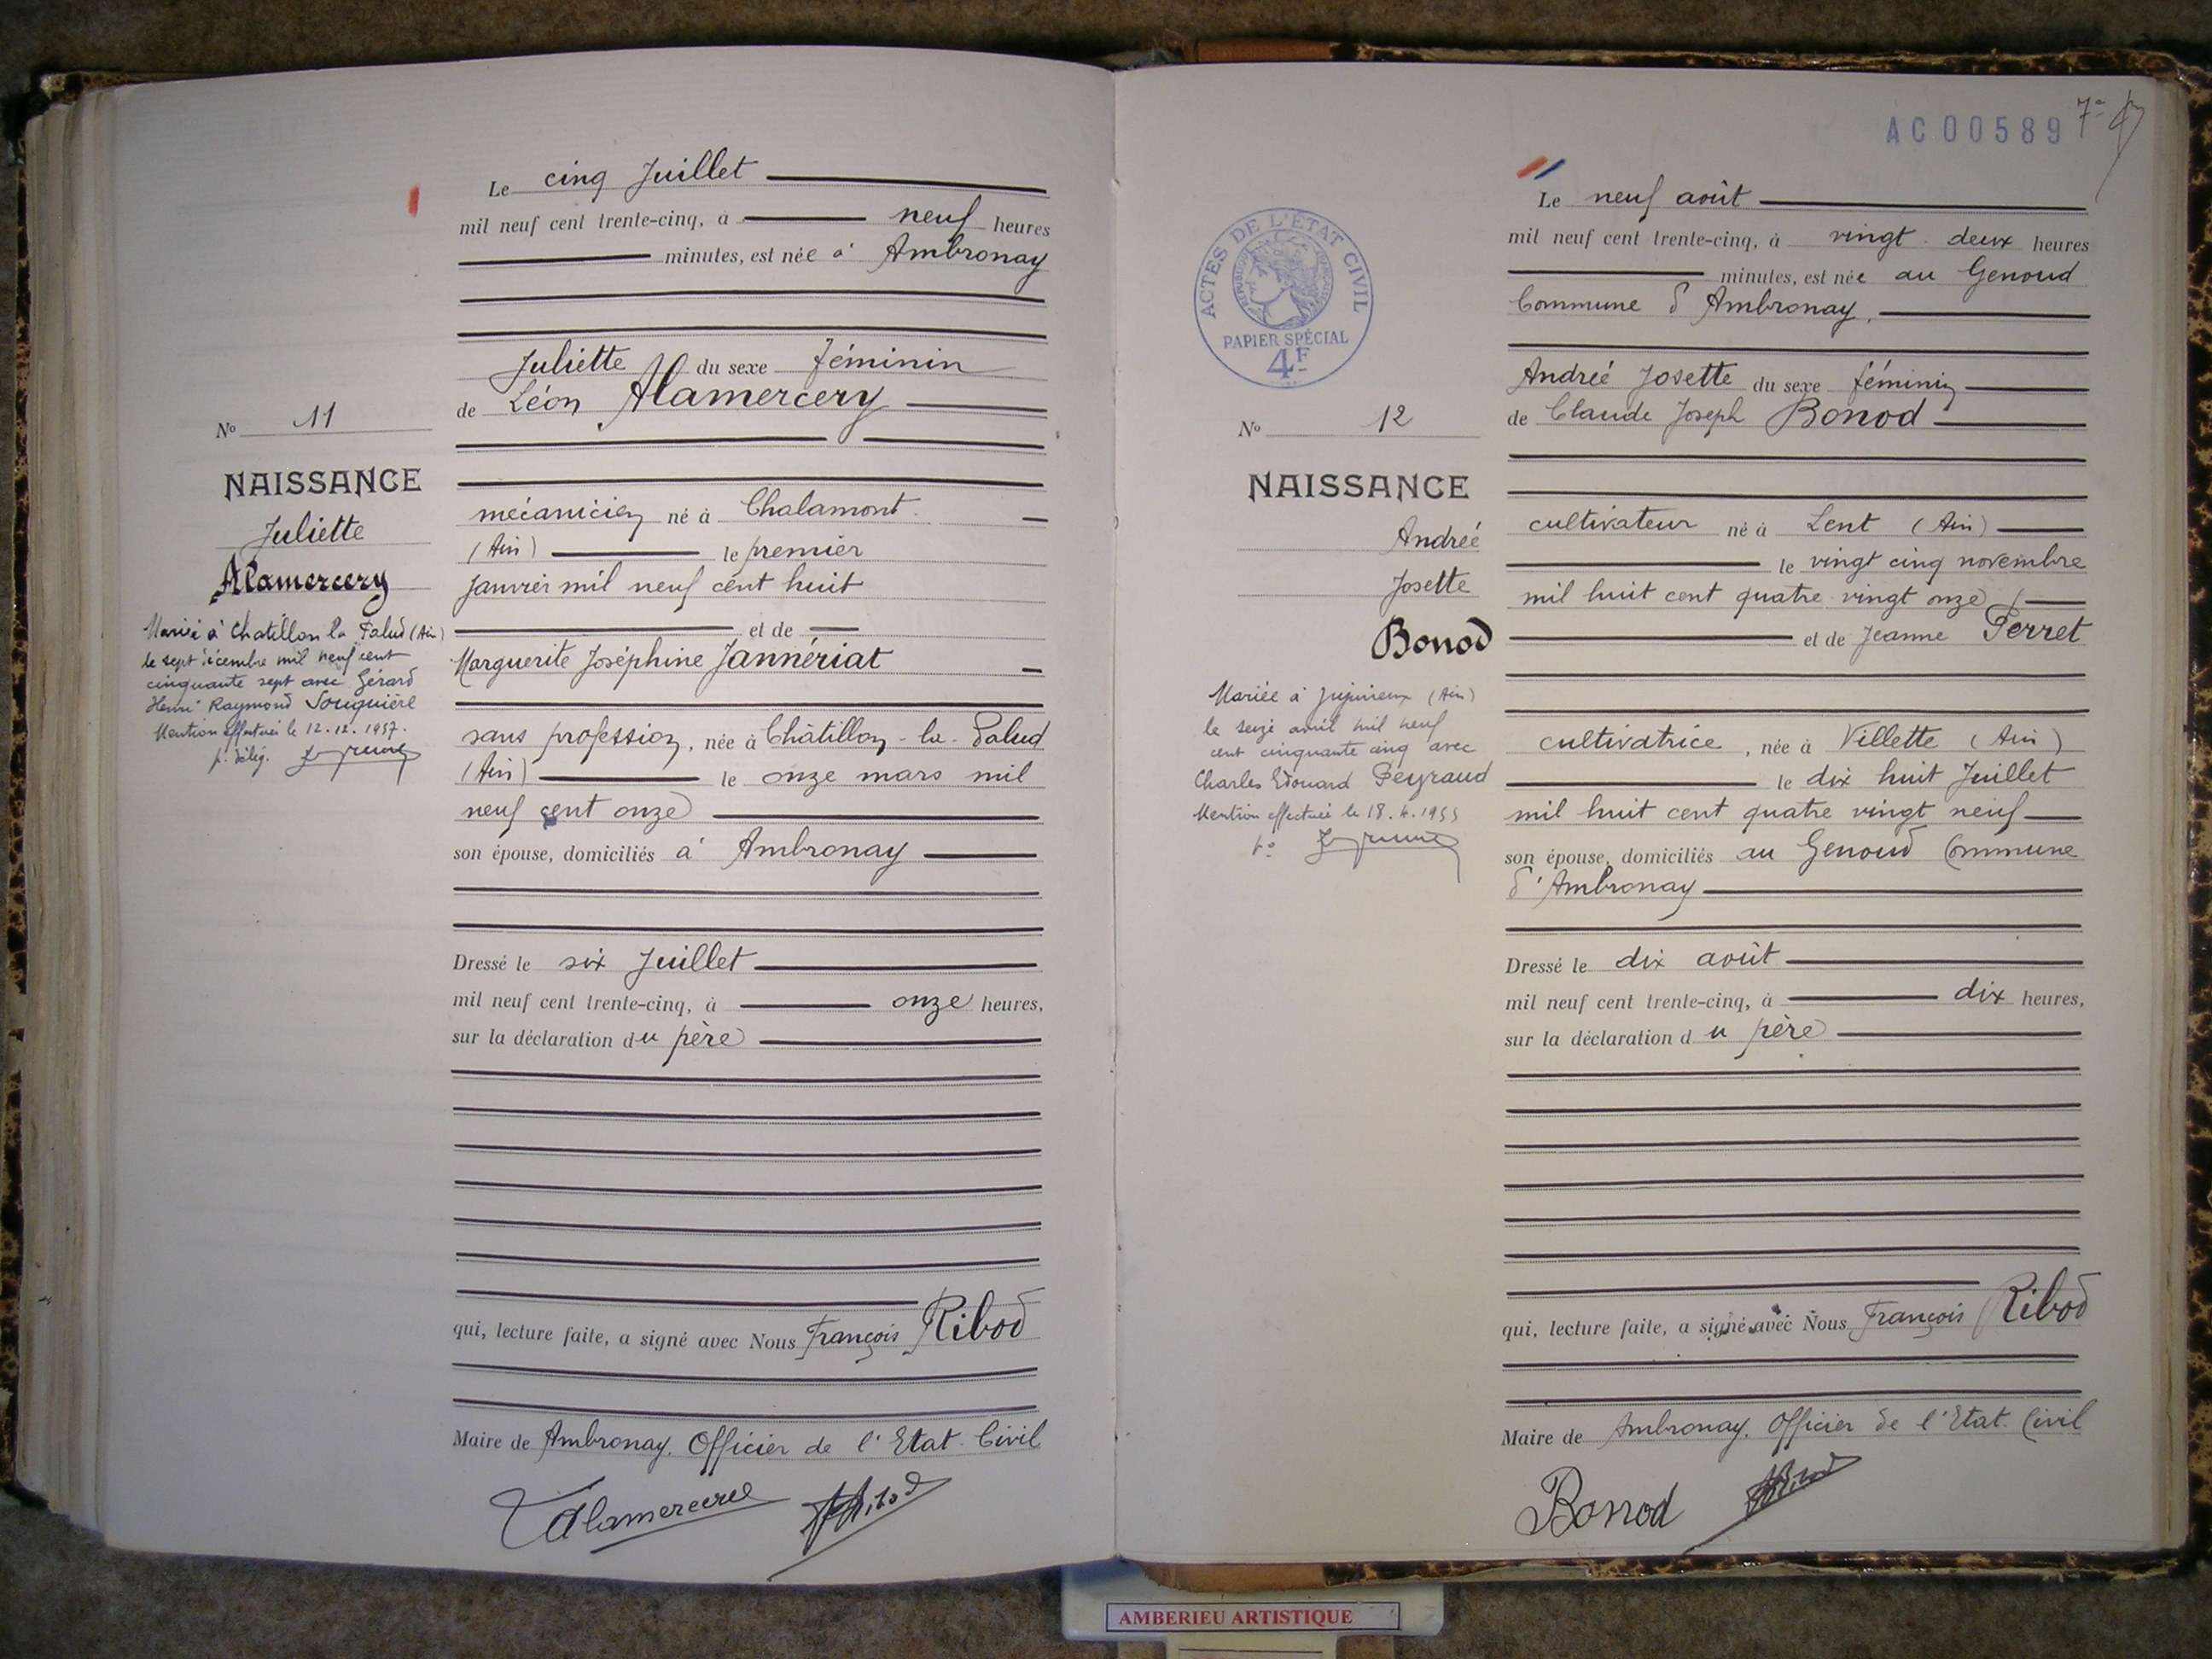 Le cinq Juillet
mil neuf cent trente-cinq, à neuf heures
minutes, est née à Ambronay
Juliette du sexe féminin
de Léon Alamercery
No 11
NAISSANCE
Juliette
Alamercery
Mariée à Chatillon la Palud (Ain)
le sept décembre mil neuf cent
cinquante sept avec Gérard
Henri Raymond Souquière
Mention effectuée le 12.12.1957.
p. délég.
mécanicien né à Chalamont
(Ain) le premier
Janvier mil neuf cent huit
et de
Marguerite Joséphine Jannériat
sans profession, née à Châtillon-la-Palud
(Ain) le onze mars mil
neuf cent onze
son épouse, domiciliés à Ambronay
Dressé le six Juillet
mil neuf cent trente-cinq, à onze heures,
sur la déclaration du père
qui, lecture faite, a signé avec Nous François Ribod
Maire de Ambronay. Officier de l'Etat-Civil
AC00589
Le neuf août
mil neuf cent trente-cinq, à vingt-deux heures
minutes, est née au Genoud
Commune d'Ambronay,
Andreé Josette du sexe féminin
de Claude Joseph Bonod
ACTES DE L'ÉTAT CIVIL
PAPIER SPÉCIAL
4F
No 12
NAISSANCE
Andreé
Josette
Bonod
Mariée à Jujurieux (Ain)
le seize avril mil neuf
cent cinquante cinq avec
Charles Edouard Peyraud
Mention effectuée le 18.4.1955
po
cultivateur né à Lent (Ain)
le vingt cinq novembre
mil huit cent quatre-vingt onze
et de Jeanne Perret
cultivatrice, née à Villette (Ain)
le dix huit Juillet
mil huit cent quatre vingt neuf
son épouse, domiciliés au Genoud Commune
d'Ambronay
Dressé le dix août
mil neuf cent trente-cinq, à dix heures,
sur la déclaration du père
qui, lecture faite, a signé avec Nous François Ribod
Maire de Ambronay. Officier de l'Etat-Civil
Bonod
AMBERIEU ARTISTIQUE